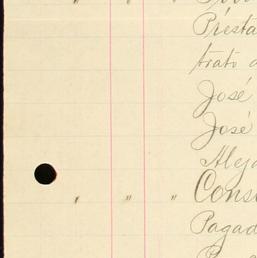 "
Présta
trato
José
José
Aleja
" " " Cons
Pagad